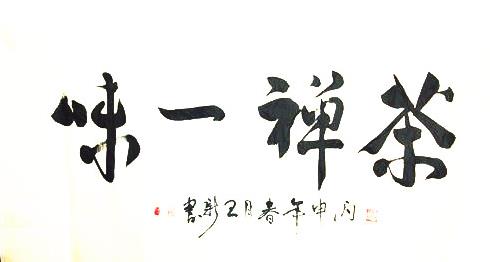 茶禅一味
丙申年春月王彰書